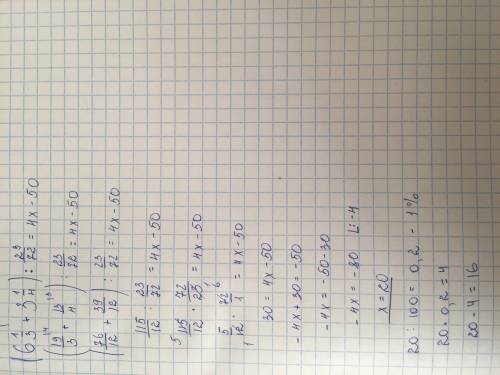 (6 1/3 + 3 1/4) : 23/72 = 4x - 50
(19/3 + 13/4) : 23/72 = 4x - 50
(76/12 + 39/12) : 23/72 = 4x - 50
115/12 : 23/72 = 4x - 50
115/12 · 72/23 = 4x - 50
5/12 · 72/1 = 4x - 50
30 = 4x - 50
- 4x + 30 = - 50
- 4x = - 50 - 30
- 4x = - 80 |: - 4
x = 20
20 : 100 = 0,2 - 1%
20 · 0,2 = 4
20 - 4 = 16